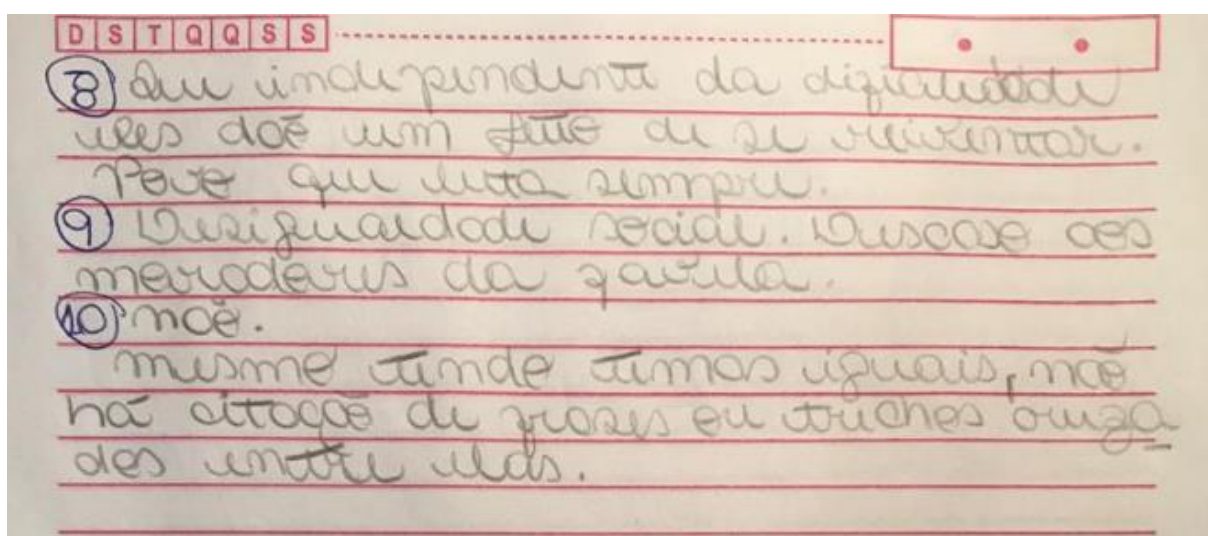 D S T Q Q S S
8 Que independente da dificuldade
eles dão um jeito de se reinventar.
Povo que luta sempre.
9 Desigualdade social. Descaso aos
moradores da favela.
10 não.
mesmo tendo temas iguais, não
há citação de frases ou trechos
dos entre elas.